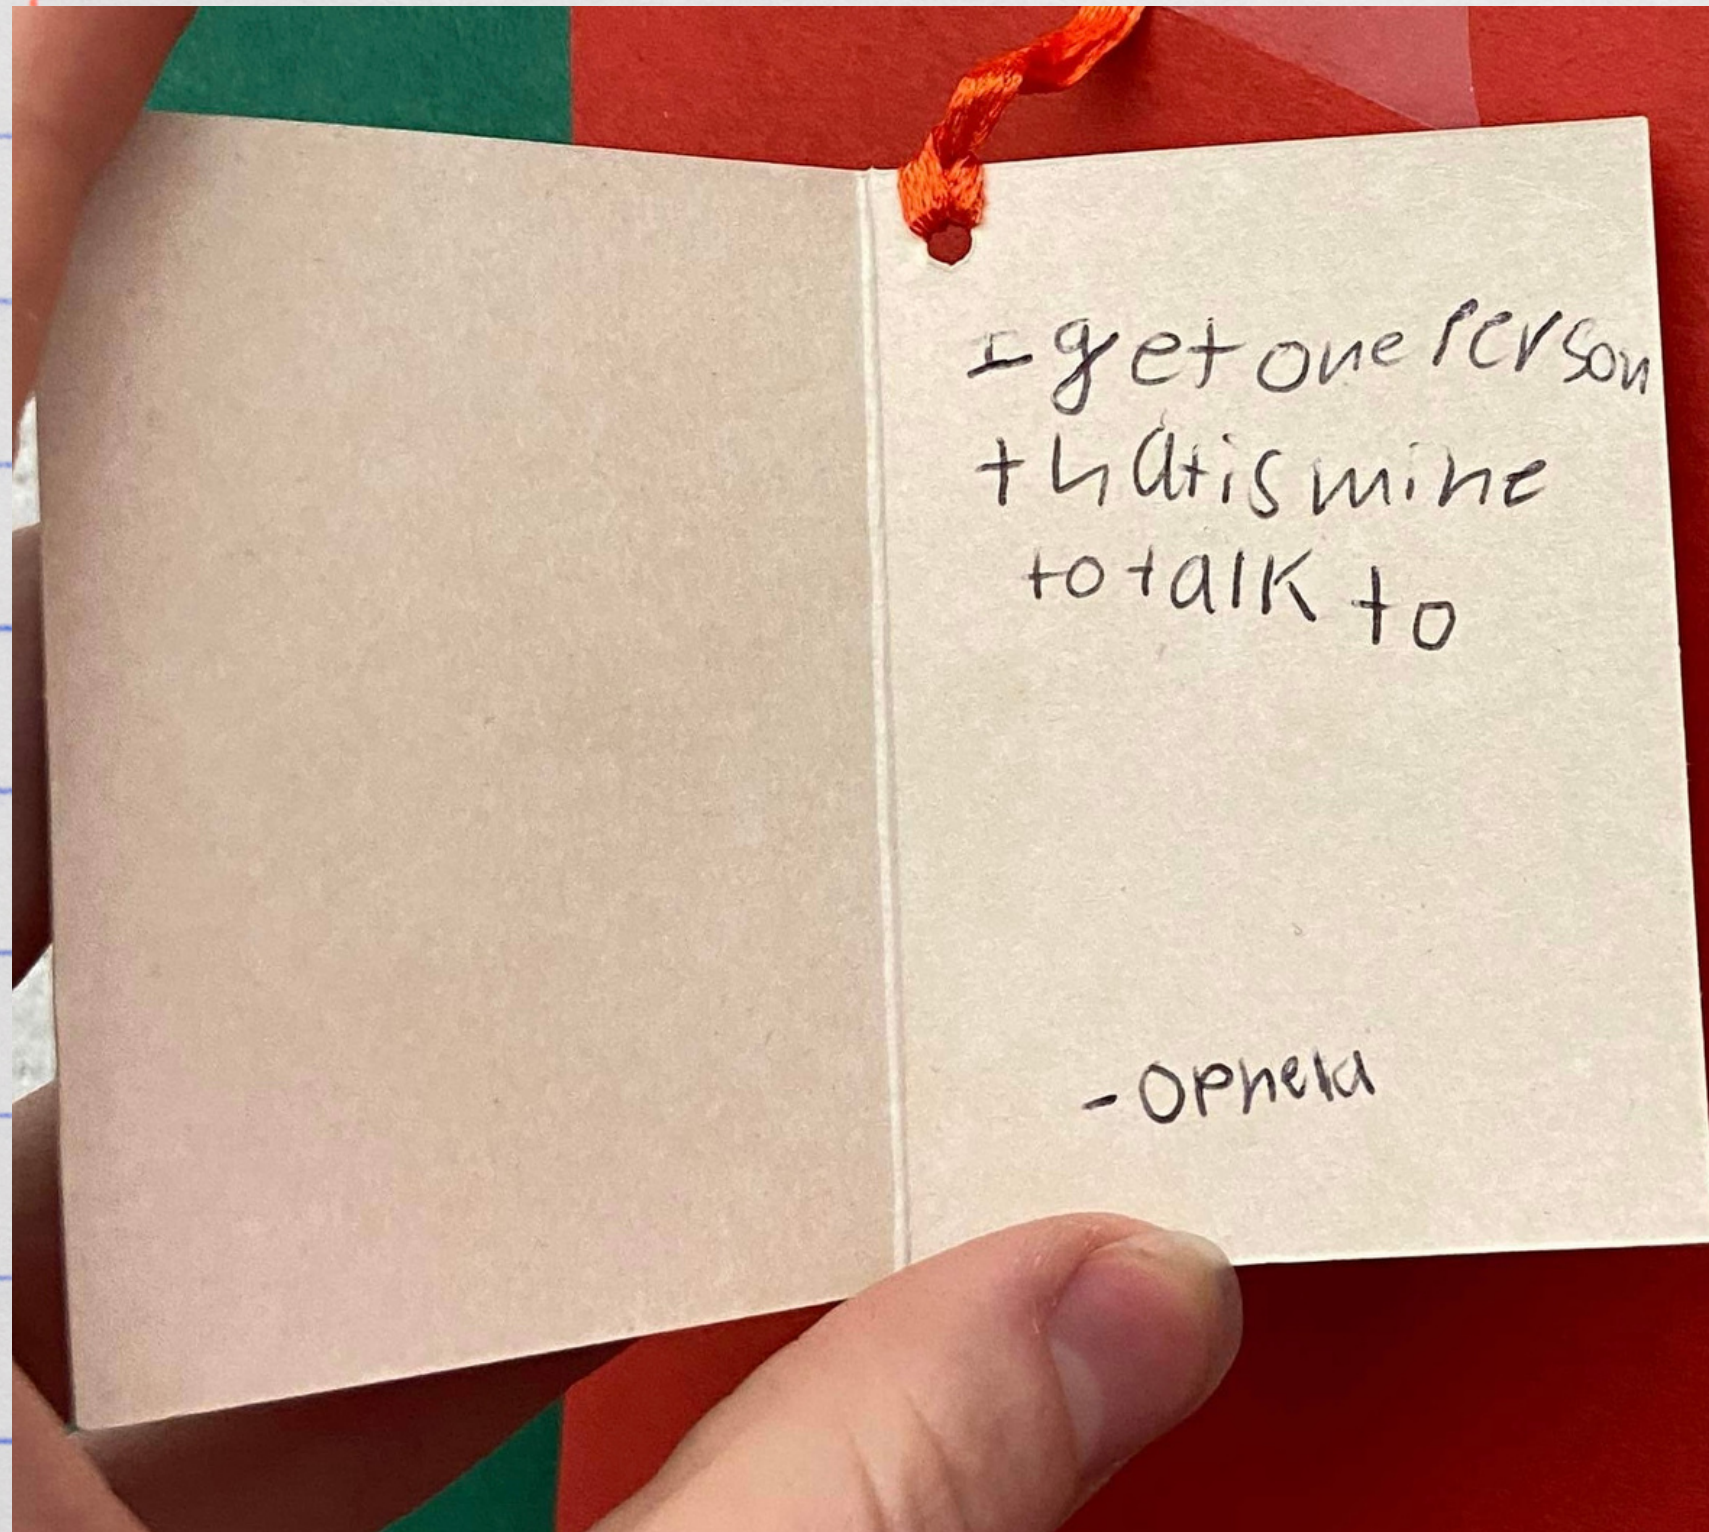 I get one Person
that is mine
to talk to
- Ophelia